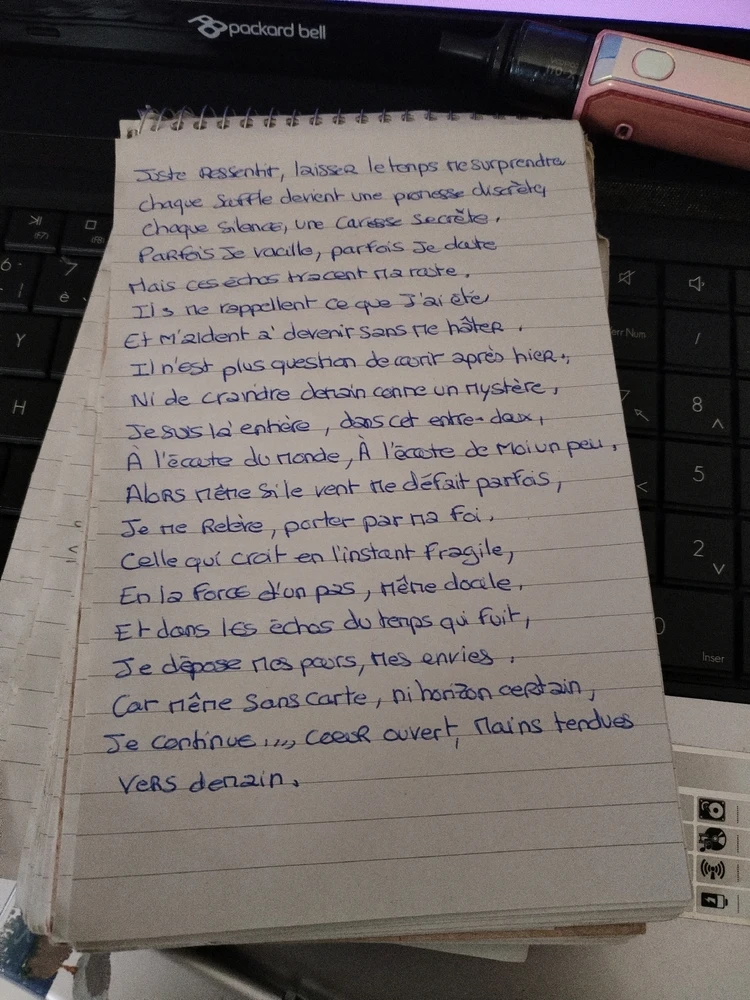 packard bell
Juste Ressentir, laisser le temps me surprendre
chaque souffle devient une promesse discrète,
chaque silence, une caresse secrète.
Parfois Je vacille, parfois Je doute
Mais ces échos tracent ma route.
Ils me rappellent ce que J'ai été
Et m'aident à devenir sans me hâter.
Il n'est plus question de courir après hier.,
Ni de craindre demain comme un mystère,
Je suis là entière, dans cet entre-deux,
À l'écoute du monde, À l'écoute de Moi un peu.
Alors même si le vent me défait parfois,
Je me Relève, porter par ma foi.
Celle qui croit en l'instant fragile,
En la force d'un pas, même docile.
Et dans les échos du temps qui fuit,
Je dépose mes peurs, mes envies.
Car même sans carte, ni horizon certain,
Je continue,,,, coeur ouvert, mains tendues
vers demain.
6
7
è
Y
H
Verr Num
/
7
8
5
2
0
Inser